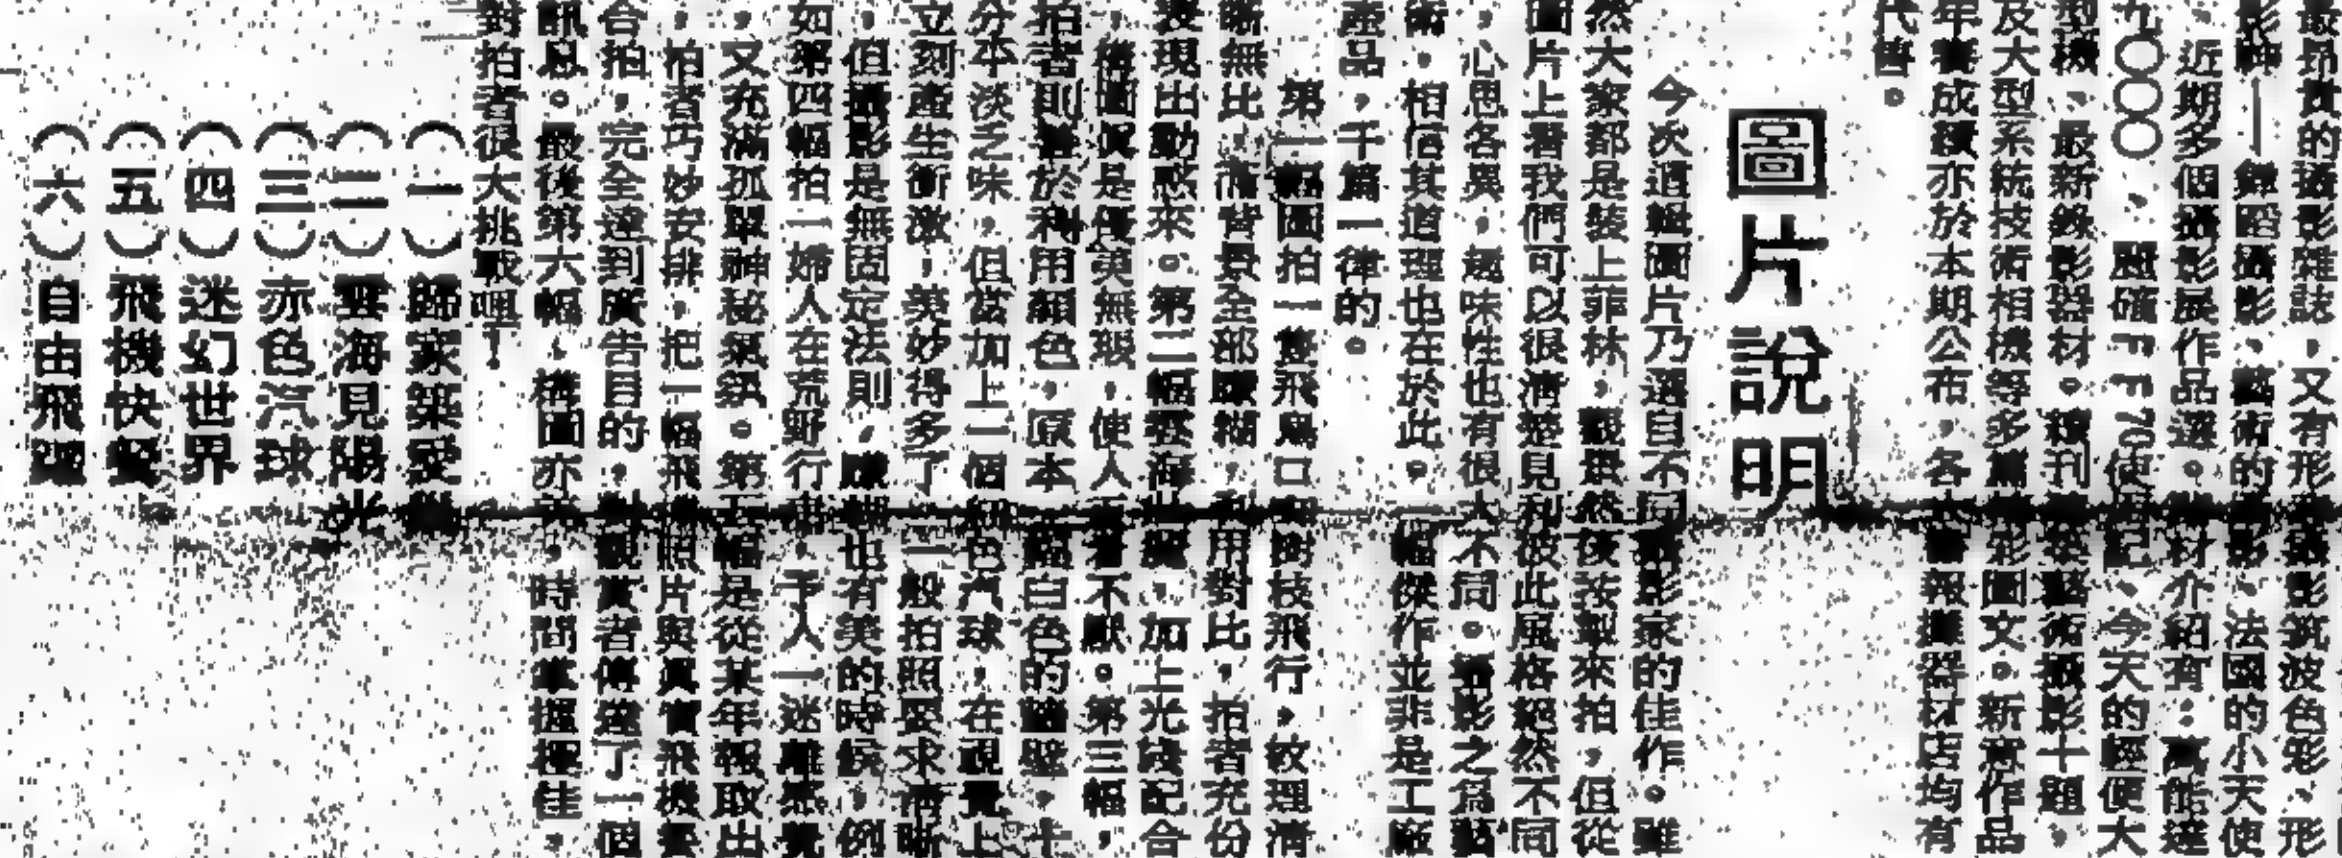 最昂貴的攝影雜誌，又有形攝影筑波色彩、形
影神—鐘暗攝影、藝術的影、法國的小天使
、近期多個攝影展作品選。材介紹有：萬能達
九〇〇〇、尼確ＦＦ70使用記、今天的輕便大
型機、最新錄影器材。續刊藝術攝影十題，
及大型系統技術相機等多篇彩圖文。新書作品
年賽成績亦於本期公布，各大書報攤器材店均有
代售。
圖片說明
今次這輯圖片乃選自不同攝影家的佳作。雖
然大家都是裝上菲林，觀景然後按掣來拍，但從
圖片上看我們可以很清楚見到彼此風格絕然不同
，心思各異，趣味性也有很大不同。攝影之為藝
術，相信其道理也在於此。一幅傑作並非是工廠
產品，千篇一律的。
第一幅圖拍一隻飛鳥口啣樹枝飛行，紋理清
晰無比，而背景全部朦糊，利用對比，拍者充份
表現出動感來。第二幅雲海出現，加上光線配合
，構圖眞是優美無瑕，使人百看不厭。第三幅，
拍者則善於利用顏色，原本一幅白色的牆壁，十
分本淡乏味，但當加上二個紅色汽球，在視覺上
立刻產生衝激，美妙得多了。一般拍照要求清晰
，但攝影是無固定法則，朦糊也有美的時候，例
如第四幅拍一婦人在荒野行走，予人一迷離感覺
，又充滿孤單神秘氣氛。第五幅是從某年報取出
，拍者巧妙安排，把一幅飛機照片與眞實飛機套
合拍，完全達到廣告目的，對觀賞者傳達了一個
訊息。最後第六幅，構圖亦不，時間掌握極佳，
對拍者很大挑戰哩！
（一）歸家築愛巢
（二）雲海見陽光
（三）赤色汽球
（四）迷幻世界
（五）飛機快餐
（六）自由飛躍